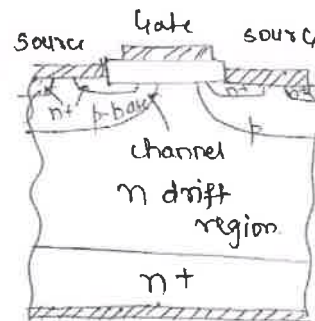 Gate
Source
Source
n+
p-base
n+
n+
p
channel
n drift
region
n+